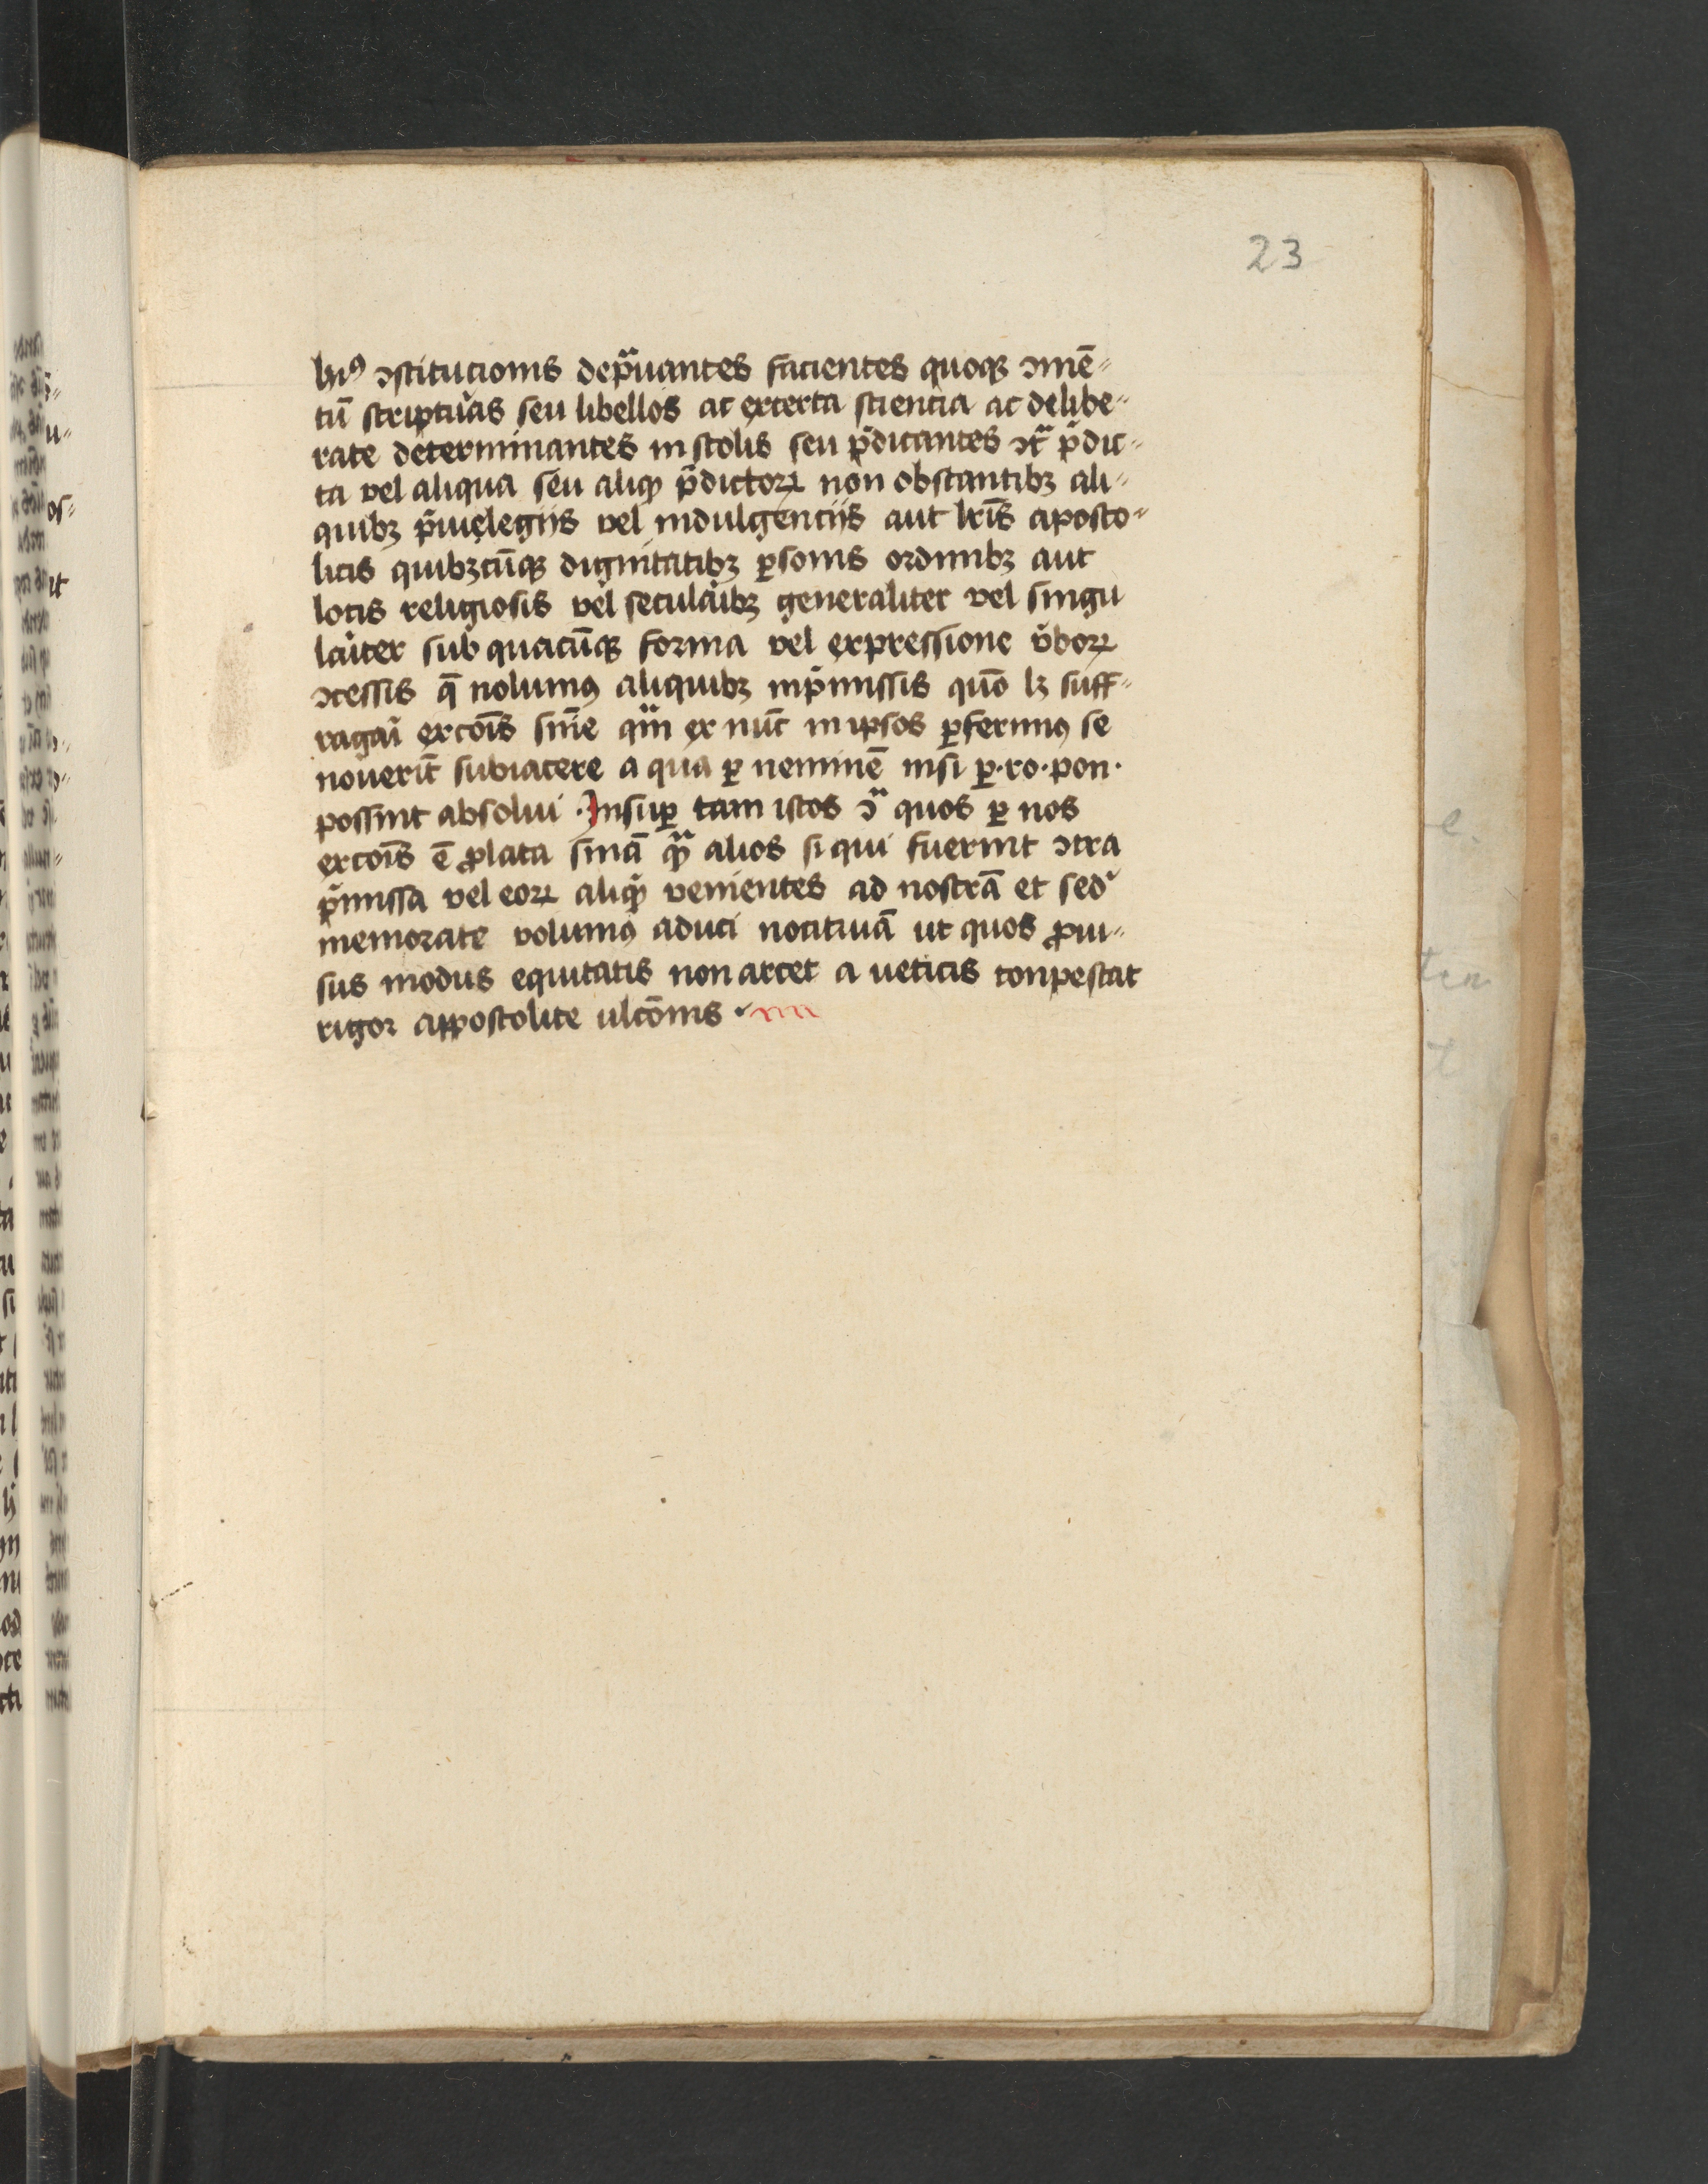 23
hiꝰ ꝯstitucionis depͣuantes facientes quoqꝫ ꝯmē⸗
tū scriptuᷓas seu libellos ac excerta sciencia ac delibe⸗
rate determinantes in scolis seu p̄dicantes ꝯtͣ p̄dic⸗
ta vel aliqua seu aliqͦ p̄dictoꝝ non obstantibꝫ ali⸗
quibꝫ p̄iuelegijs vel indulgencijs aut lr̄is aposto⸗
licis quibꝫcūqꝫ dignitatibꝫ ꝑsonis ordinibꝫ aut
locis religiosis vel seculaibꝫ generaliter vel singu
laiter sub quacūqꝫ forma vel expressione v̄boꝝ
ꝯcessis q̄ nolumꝰ aliquibꝫ in p̄missis quō lꝫ suff⸗
ragai excōis sn̄ie qͣm ex nūc in ipsos ꝑferimꝰ se
nouerīt subiacere a qua ꝑ neminē nisi ꝑ · ro · pon ·
possint absolui · Insuꝑ tam istos ꝯͣ quos ꝑ nos
excōis ē ꝓlata sn̄iā qͣꝫ alios si qui fuerint ꝯtra
p̄missa vel eoꝝ aliqͦ venientes ad nostrā et sed᷑
memorate volumꝰ aduci nocitiuā ut quos ꝓui⸗
sus modus equitatis non arcet a ueticis conpescat
rigor appostolice ulcōnis ·